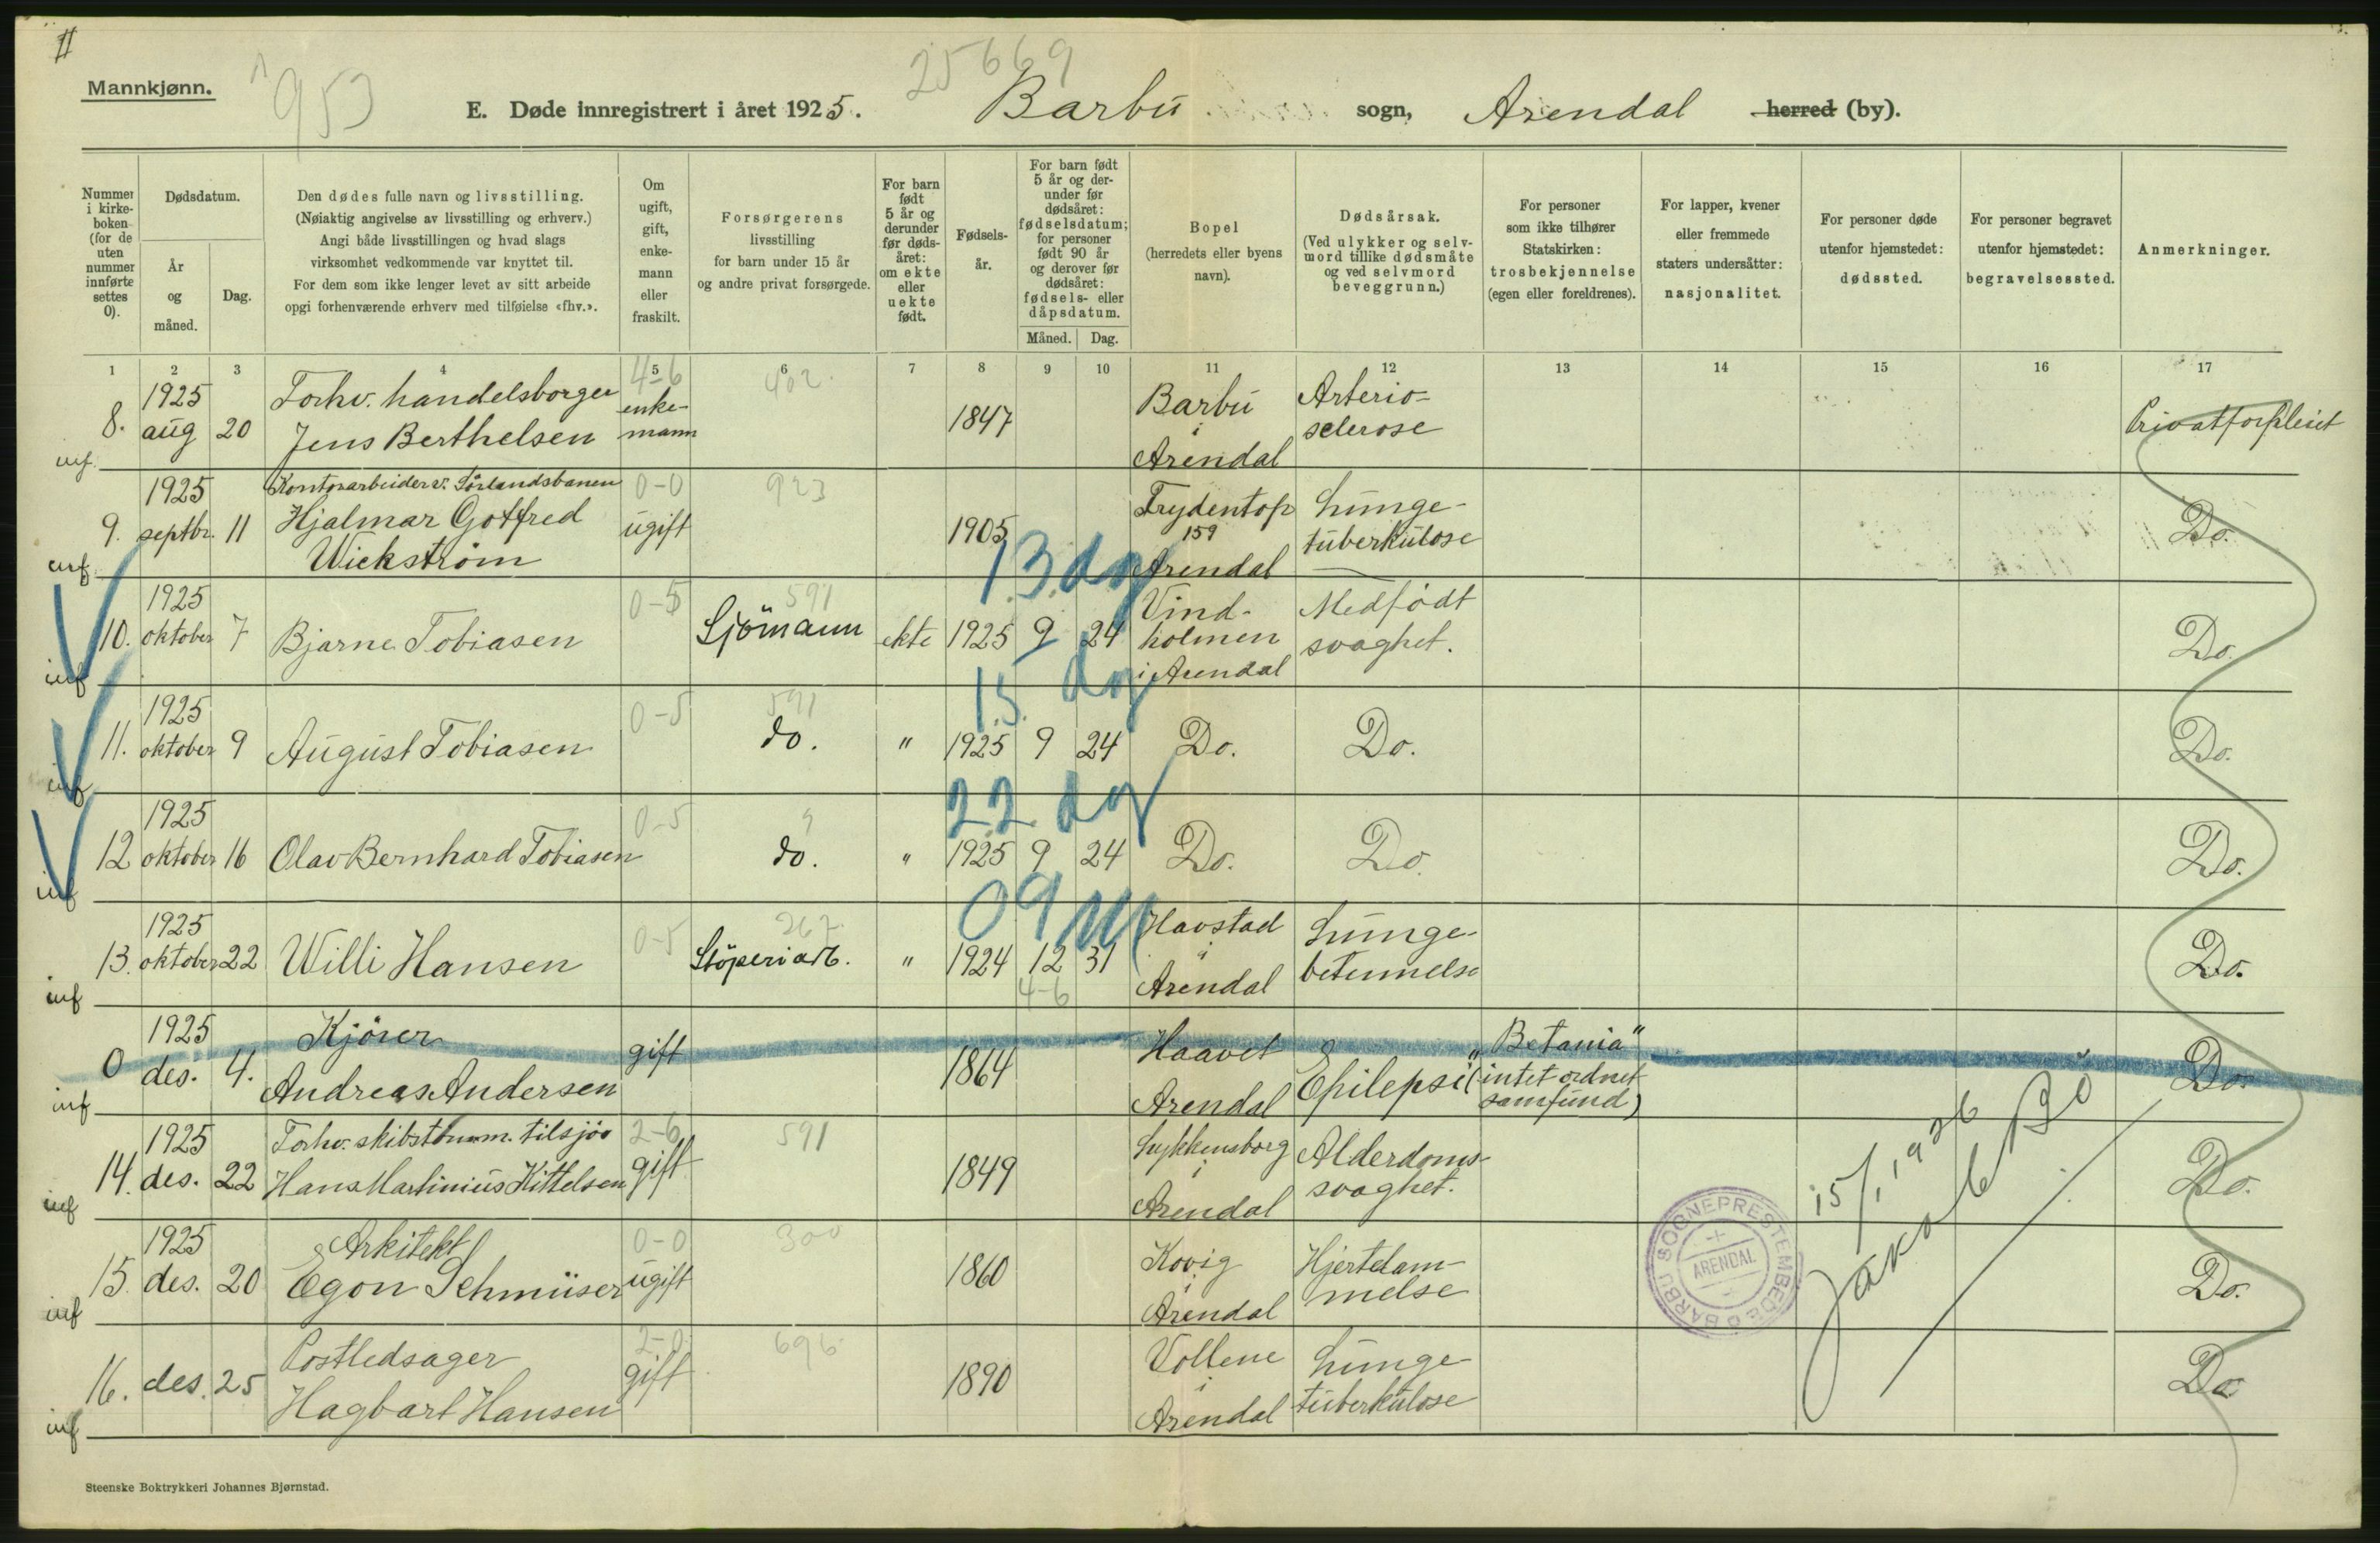 II
Mannkjønn.
953
25669
E. Døde innregistrert i året 1925. Barbu sogn, Arendal herred (by).
Nummer i kirke-boken (for de uten nummer innførte settes 0).
Dødsdatum.
År og måned.
Dag.
Den dødes fulle navn og livsstilling.
(Nøiaktig angivelse av livsstilling og erhverv.)
Angi både livsstillingen og hvad slags
virksomhet vedkommende var knyttet til.
For dem som ikke lenger levet av sitt arbeide
opgi forhenværende erhverv med tilføielse «fhv.».
Om ugift, gift, enke-mann eller fraskilt.
Forsørgerens
livsstilling
for barn under 15 år
og andre privat forsørgede.
For barn født 5 år og derunder før døds-året: om ekte eller uekte født.
Fødsels-år.
For barn født 5 år og der-under før dødsåret: fødselsdatum; for personer født 90 år og derover før dødsåret: fødsels- eller dåpsdatum.
Måned. Dag.
Bopel
(herredets eller byens
navn).
Dødsårsak.
(Ved ulykker og selv-
mord tillike dødsmåte
og ved selvmord
beveggrunn.)
For personer
som ikke tilhører
Statskirken:
trosbekjennelse
(egen eller foreldrenes).
For lapper, kvener
eller fremmede
staters undersåtter:
nasjonalitet.
For personer døde
utenfor hjemstedet:
dødssted.
For personer begravet
utenfor hjemstedet:
begravelsessted.
Anmerkninger.
1 2 3 4 5 6 7 8 9 10 11 12 13 14 15 16 17
8. 1925 aug 20 Forhv. handelsborger Jens Berthelsen 4-6 enke-mann 402. 1847 Barbu i Arendal Arterio-sclerose Privatforpleiet
9. 1925 septbr. 11 Kontorarbeider v. Sørlandsbanen Hjalmar Gotfred Wickstrøm 0-0 ugift 923 1905 Frydentop 159 Arendal Lunge-tuberkulose Do.
13. dag
10. 1925 oktober 7 Bjarne Tobiasen 0-5 591 Sjömann ekte 1925 9 24 Vind-holmen i Arendal Medfødt svaghet. Do.
15. dag
11. 1925 oktober 9 August Tobiasen 0-5 591 do. " 1925 9 24 Do. Do. Do.
22 dag
12 1925 oktober 16 Olav Bernhard Tobiasen 0-5 do. " 1925 9 24 Do. Do. Do.
09 M
13. 1925 oktober 22 Willi Hansen 0-5 267 Stöperiarb. " 1924 12 31 Havstad i Arendal Lunge-betennelse Do.
4-6
0 1925 des. 4. Kjörer Andreas Andersen gift 1864 Haavet Arendal Epilepsi "Betania" (intet ordnet samfund) Do.
14. 1925 des. 22 Forhv. skibstømm. tilsjøs Hans Martinius Kittelsen 2-6 gift 591 1849 Lykkensborg i Arendal Alderdoms-svaghet. Do.
15. 1925 des. 20 Arkitekt Egon Schmüser 0-0 ugift 300 1860 Kovig i Arendal Hjertelam-melse Do.
16. des. 25 Postledsager Hagbart Hansen 2-0 gift 696 1890 Vollene i Arendal Lunge-tuberkulose Do
15/1 1926
Jakob Bö
BARBU SOGNEPRESTEMBEDE
ARENDAL
Steenske Boktrykkeri Johannes Bjørnstad.